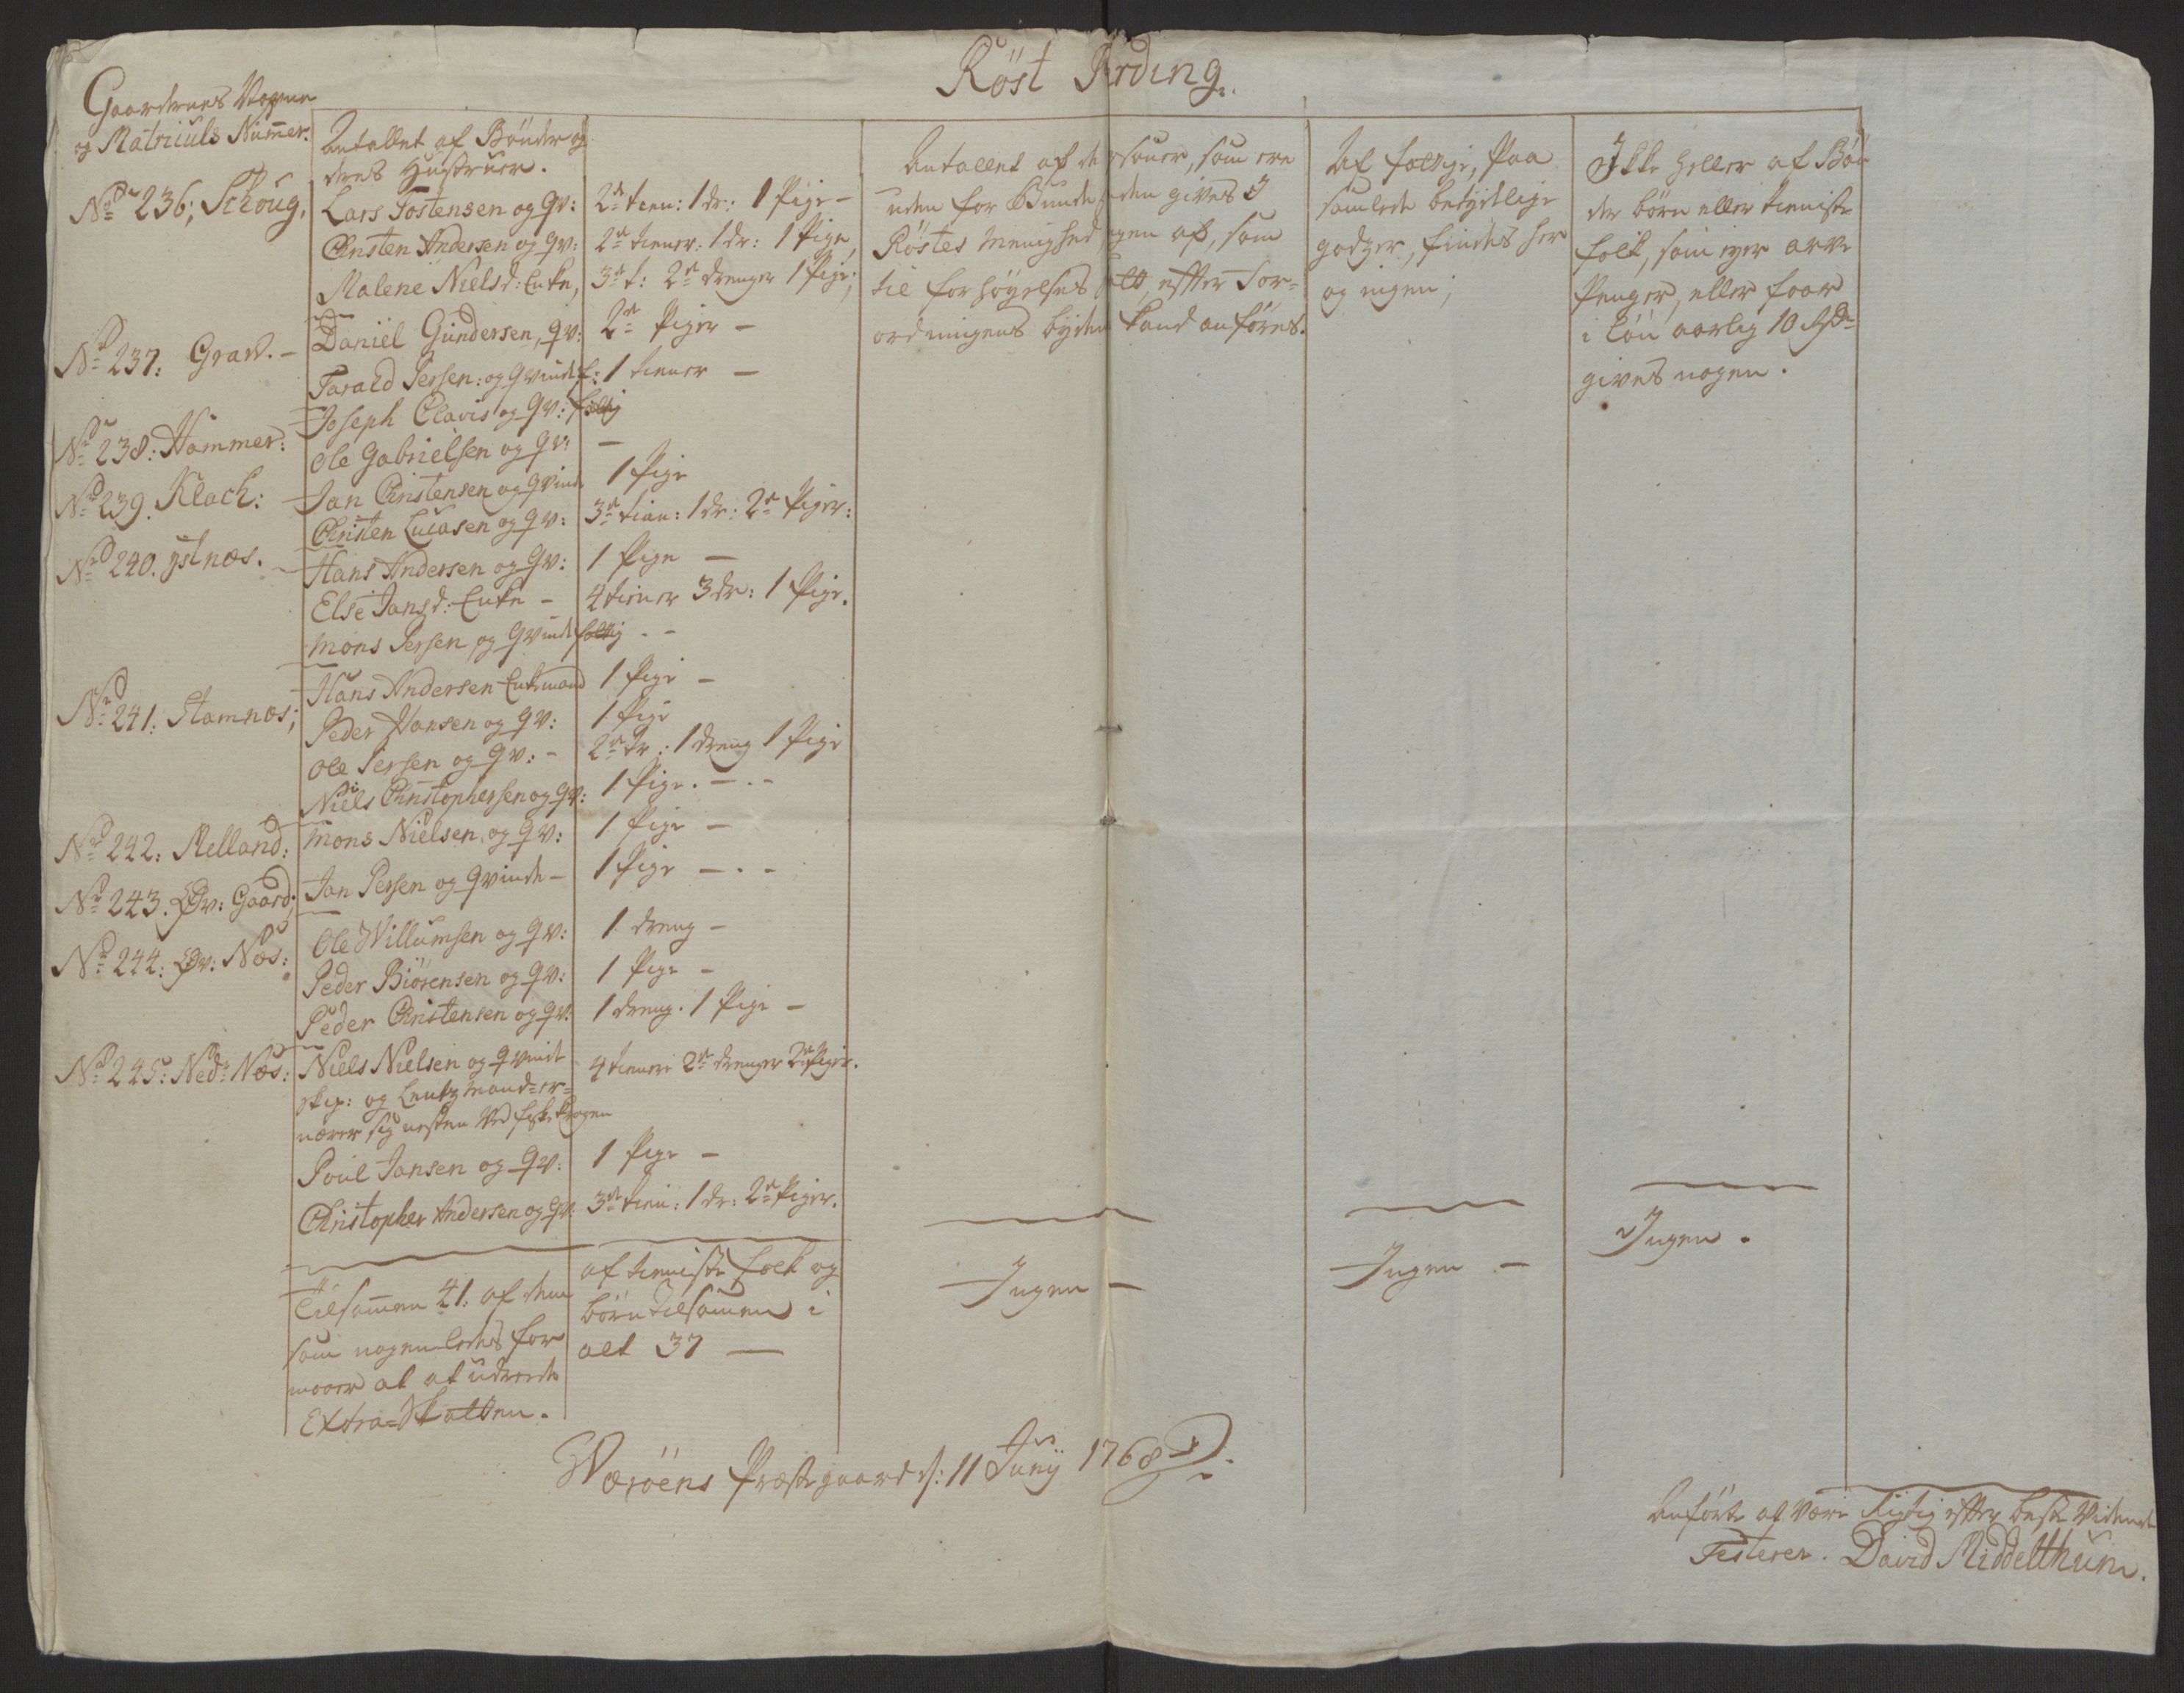 Röst Fierding.
Gaardernes Nafne
og Matriculs Nummer.
Antallet af Bönder og
deres Hustruer.
Antallet af de Persouer, som ere
uden for Bunde standen gives I
Röstes Menighed ingen af, som
til forhöyelses                       , efter For-
ordningens byden kand anföres.
Af        , Paa
samlede betydelige
godzer, findes her
og ingen;
Ikke heller af Bön-
der börn eller tieniste
folk, som eyer arve
Penger, eller faar
i lön aarlig 10 Rdr
gives nogen.
No 236; Schoug, Lars Tostensen og Qv: 2de tien: 1 dr: 1 Pige -
Christen Andersen og Qv: 2de tiener: 1 dr: 1 Pige,
Malene Nielsd: Enke, 3de t: 2de drenger 1 Pige;
No 237: Grav. - Daniel Gundersen, Qv: 2de Piger -
Tarald Persen: og Qvinde f: 1 tiener -
Joseph Clavis og Qv:
No 238: Hammer: Ole Gabrielsen og Qv: -
No 239. Klack: Jan Christensen og Qvinde 1 Pige
Christen Lucasen og Qv: 3de tien: 1 dr: 2de Piger:
No 240. ystnæs. - Hans Andersen og Qv: 1 Pige -
Else Jansd: Enke - 4 tiener 3 dr: 1 Pige.
Mons Persen og Qvinde
No 241: Stamnæs; Hans Andersen Enkemand 1 Pige -
Peder Hansen og Qv: 1 Pige
Ole Persen og Qv: - 2de tr: 1 dreng 1 Pige
Niels Christophersen og Qv: 1 Pige. -.-
No 242: Melland: Mons Nielsen, og Qv: 1 Pige -
No 243. Øv: Gaard; Jan Persen og Qvinde - 1 Pige -.-
No 244: Øv: Næs: Ole Willumsen og Qv: 1 dreng -
Peder Biörensen og Qv: 1 Pige -
Peder Christensen og Qv: 1 dreng. 1 Pige -
No 245: Ned: Næs: Niels Nielsen og Qvinde 4 tienere 2de drenger 2de Piger.
skip: og Lentzmand = er =
nærer sig nesten ved fiske krogen
Poul Jansen og Qv: 1 Pige -
Christopher Andersen og Qv: 3de tien: 1 dr: 2de Piger.
Tilsammen 41: af dem
som nogenledes for
maaer at at udrede
Extra-Skatten.
af tieniste folk og
börn tilsamen i
alt 37 -
Ingen -
Ingen -
Ingen.
Wæröens Præstegaard d: 11 Junij 1768
Anförte at være Rigtig efter beste Vidende
Testerer. David Middelthun.